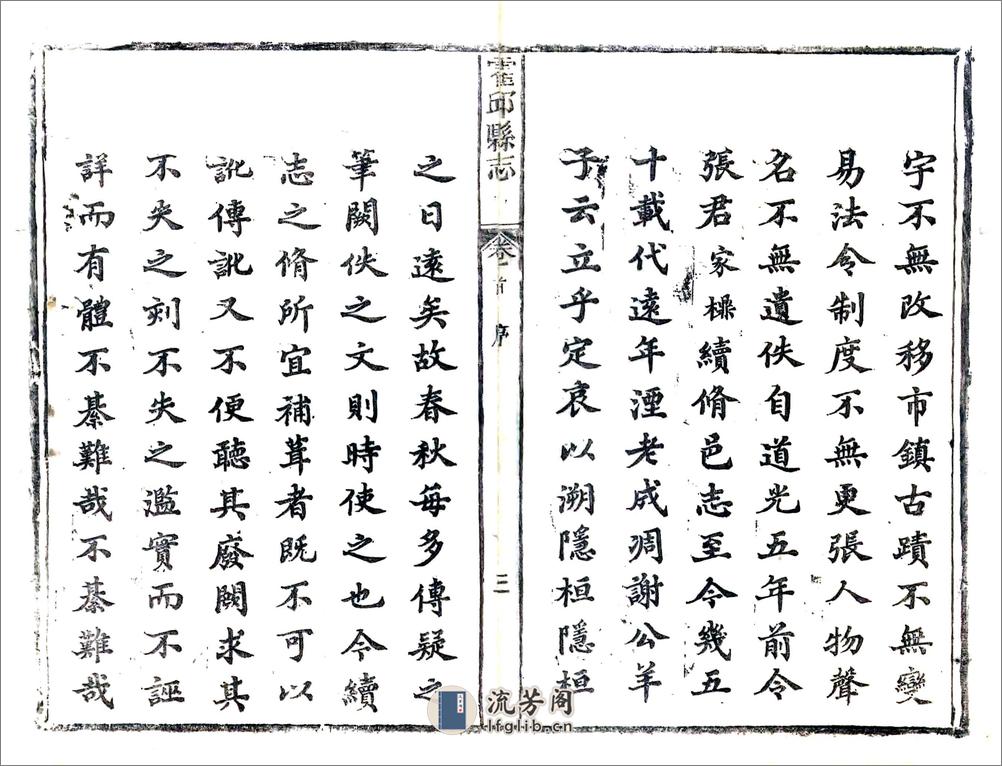 宇不無改移市鎮古蹟不無變
易法令制度不無更張人物聲
名不無遺佚自道光五年前令
張君家櫐續脩邑志至今幾五
十載代遠年湮老成凋謝公羊
子云立乎定哀以溯隱桓隱桓
霍邱縣志
卷首
序
三
之日遠矣故春秋每多傳疑之
筆闕佚之文則時使之也今續
志之脩所宜補葺者既不可以
訛傳訛又不便聽其廢闕求其
不失之刻不失之濫實而不誣
詳而有體不綦難哉不綦難哉
流芳阁
lfglib.cn